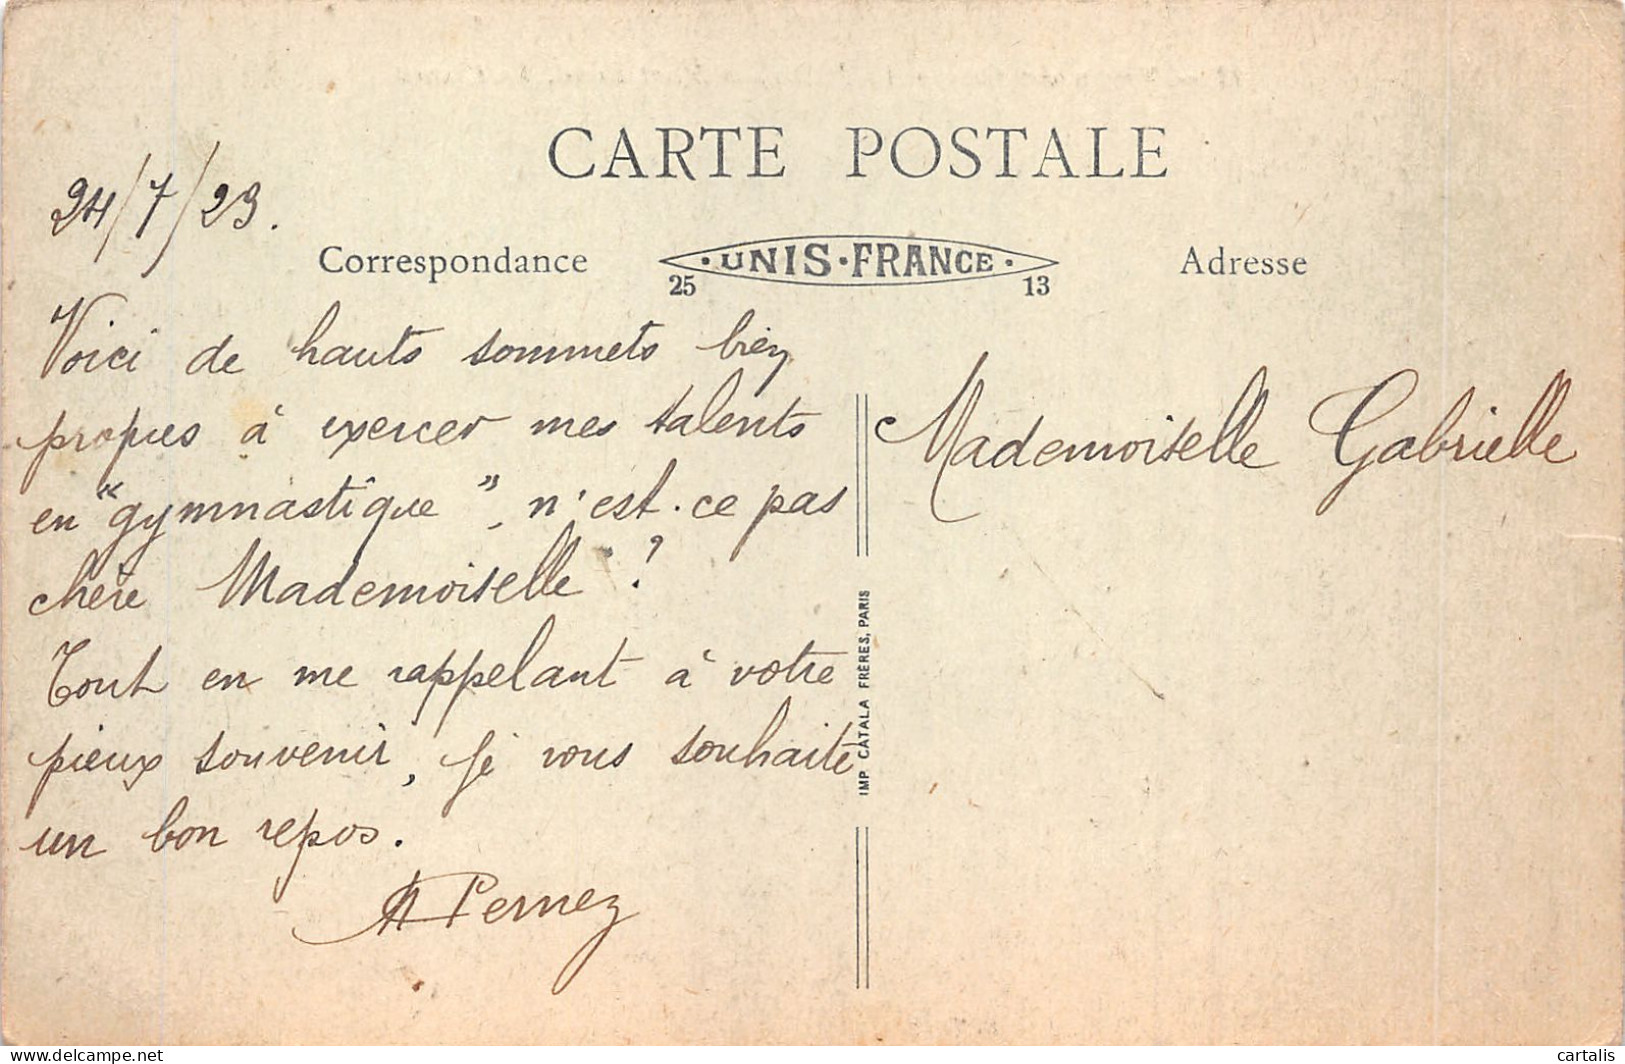 CARTE POSTALE
24/7/23.
Correspondance
UNIS-FRANCE
25 13
Adresse
Voici de hauts sommets bien
propres à exercer mes talents
en "gymnastique", n'est-ce pas
chère Mademoiselle ?
Tout en me rappelant à votre
pieux souvenir, je vous souhaite
un bon repos.
Pernez
Mademoiselle Gabrielle
IMP CATALA FRÈRES, PARIS
https://www.delcampe.net
cartalis